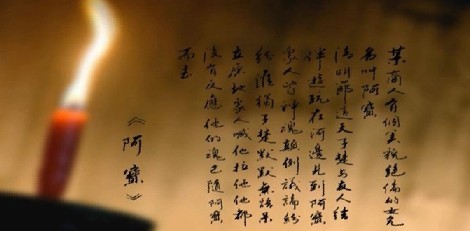 某商人有個美貌絕倫的女兒
名叫阿寶
清明節這天子楚與友人結
伴遊玩在河邊見到阿寶
眾人皆神魂顛倒議論紛
紛唯獨子楚默默無語呆
立原地家人喊他拉他他都
沒有反應他的魂已隨阿寶
而去
《阿寶》